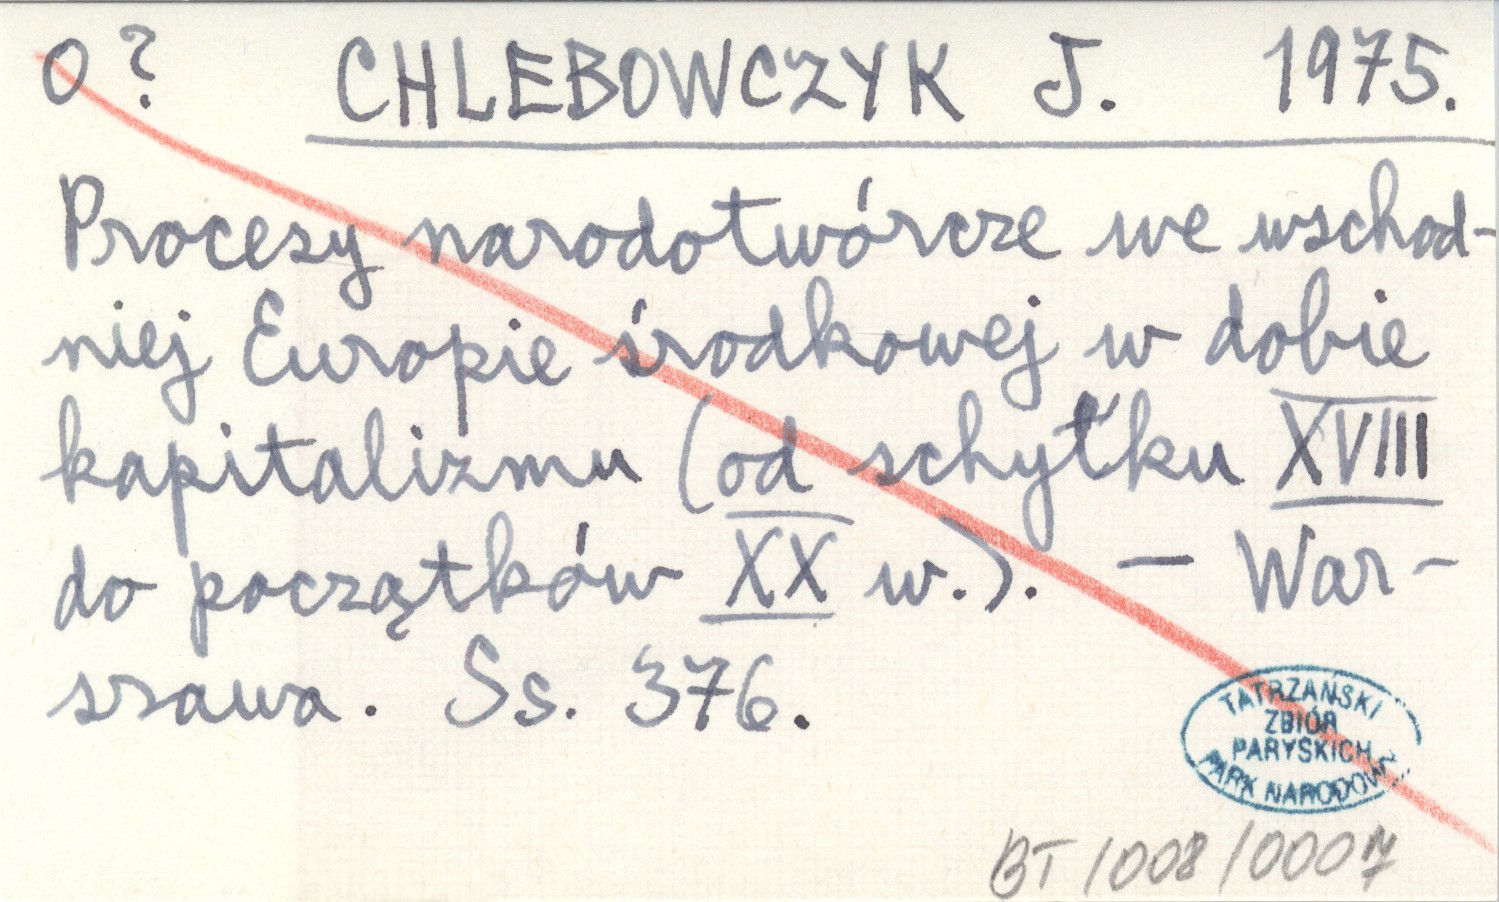 O ? CHLEBOWCZYK J. 1975.
Procesy narodotwórcze we wschod-
niej Europie środkowej w dobie
kapitalizmu (od schyłku XVIII
do początków XX w.). — War-
szawa. Ss. 376.
TATRZAŃSKI
ZBIÓR
PARYSKICH
PARK NARODOWY
BT/008/0007